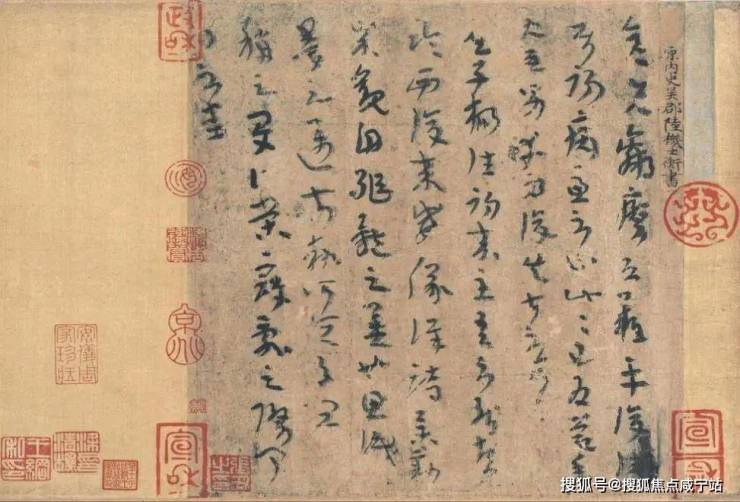 晉內史吳郡陸機士衡書
彥先羸瘵恐難平復往屬
初病慮不止此此已為慶承
使唯男幸為復失前憂耳吳
子楊往初來主吾不能盡
臨西復來威儀詳跱舉動
成觀自軀體之美也思識
量之邁前執所恒有宜
稱之夏伯榮寇亂之際聞
問不悉
政和
宣和
宣和
安儀周家珍藏
搜狐号@搜狐焦点咸宁站